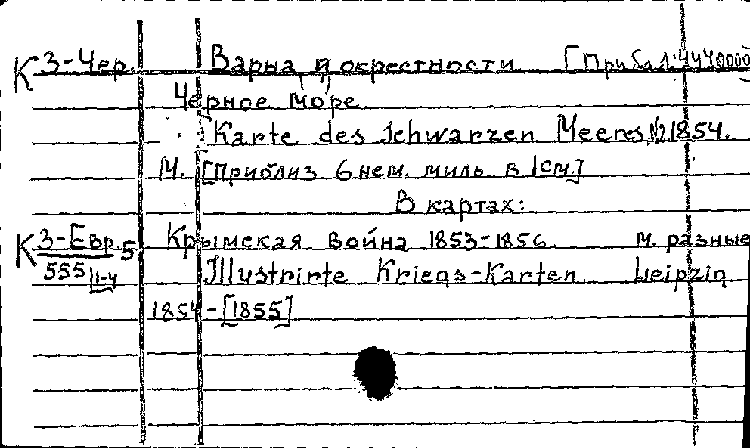 К 3-Чер. Варна и окрестности [Прибл 1:4440000]
Черное море
Karte des Schwarzen Meeres 1854.
М. [Приблиз 6 нем. миль в 1 см.]
В картах:
К 3-Евр. 5 Крымская война 1853-1856 м. разные
555 1-4 Illustrirte Kriegs-Karten Leipzig
1854-[1855]